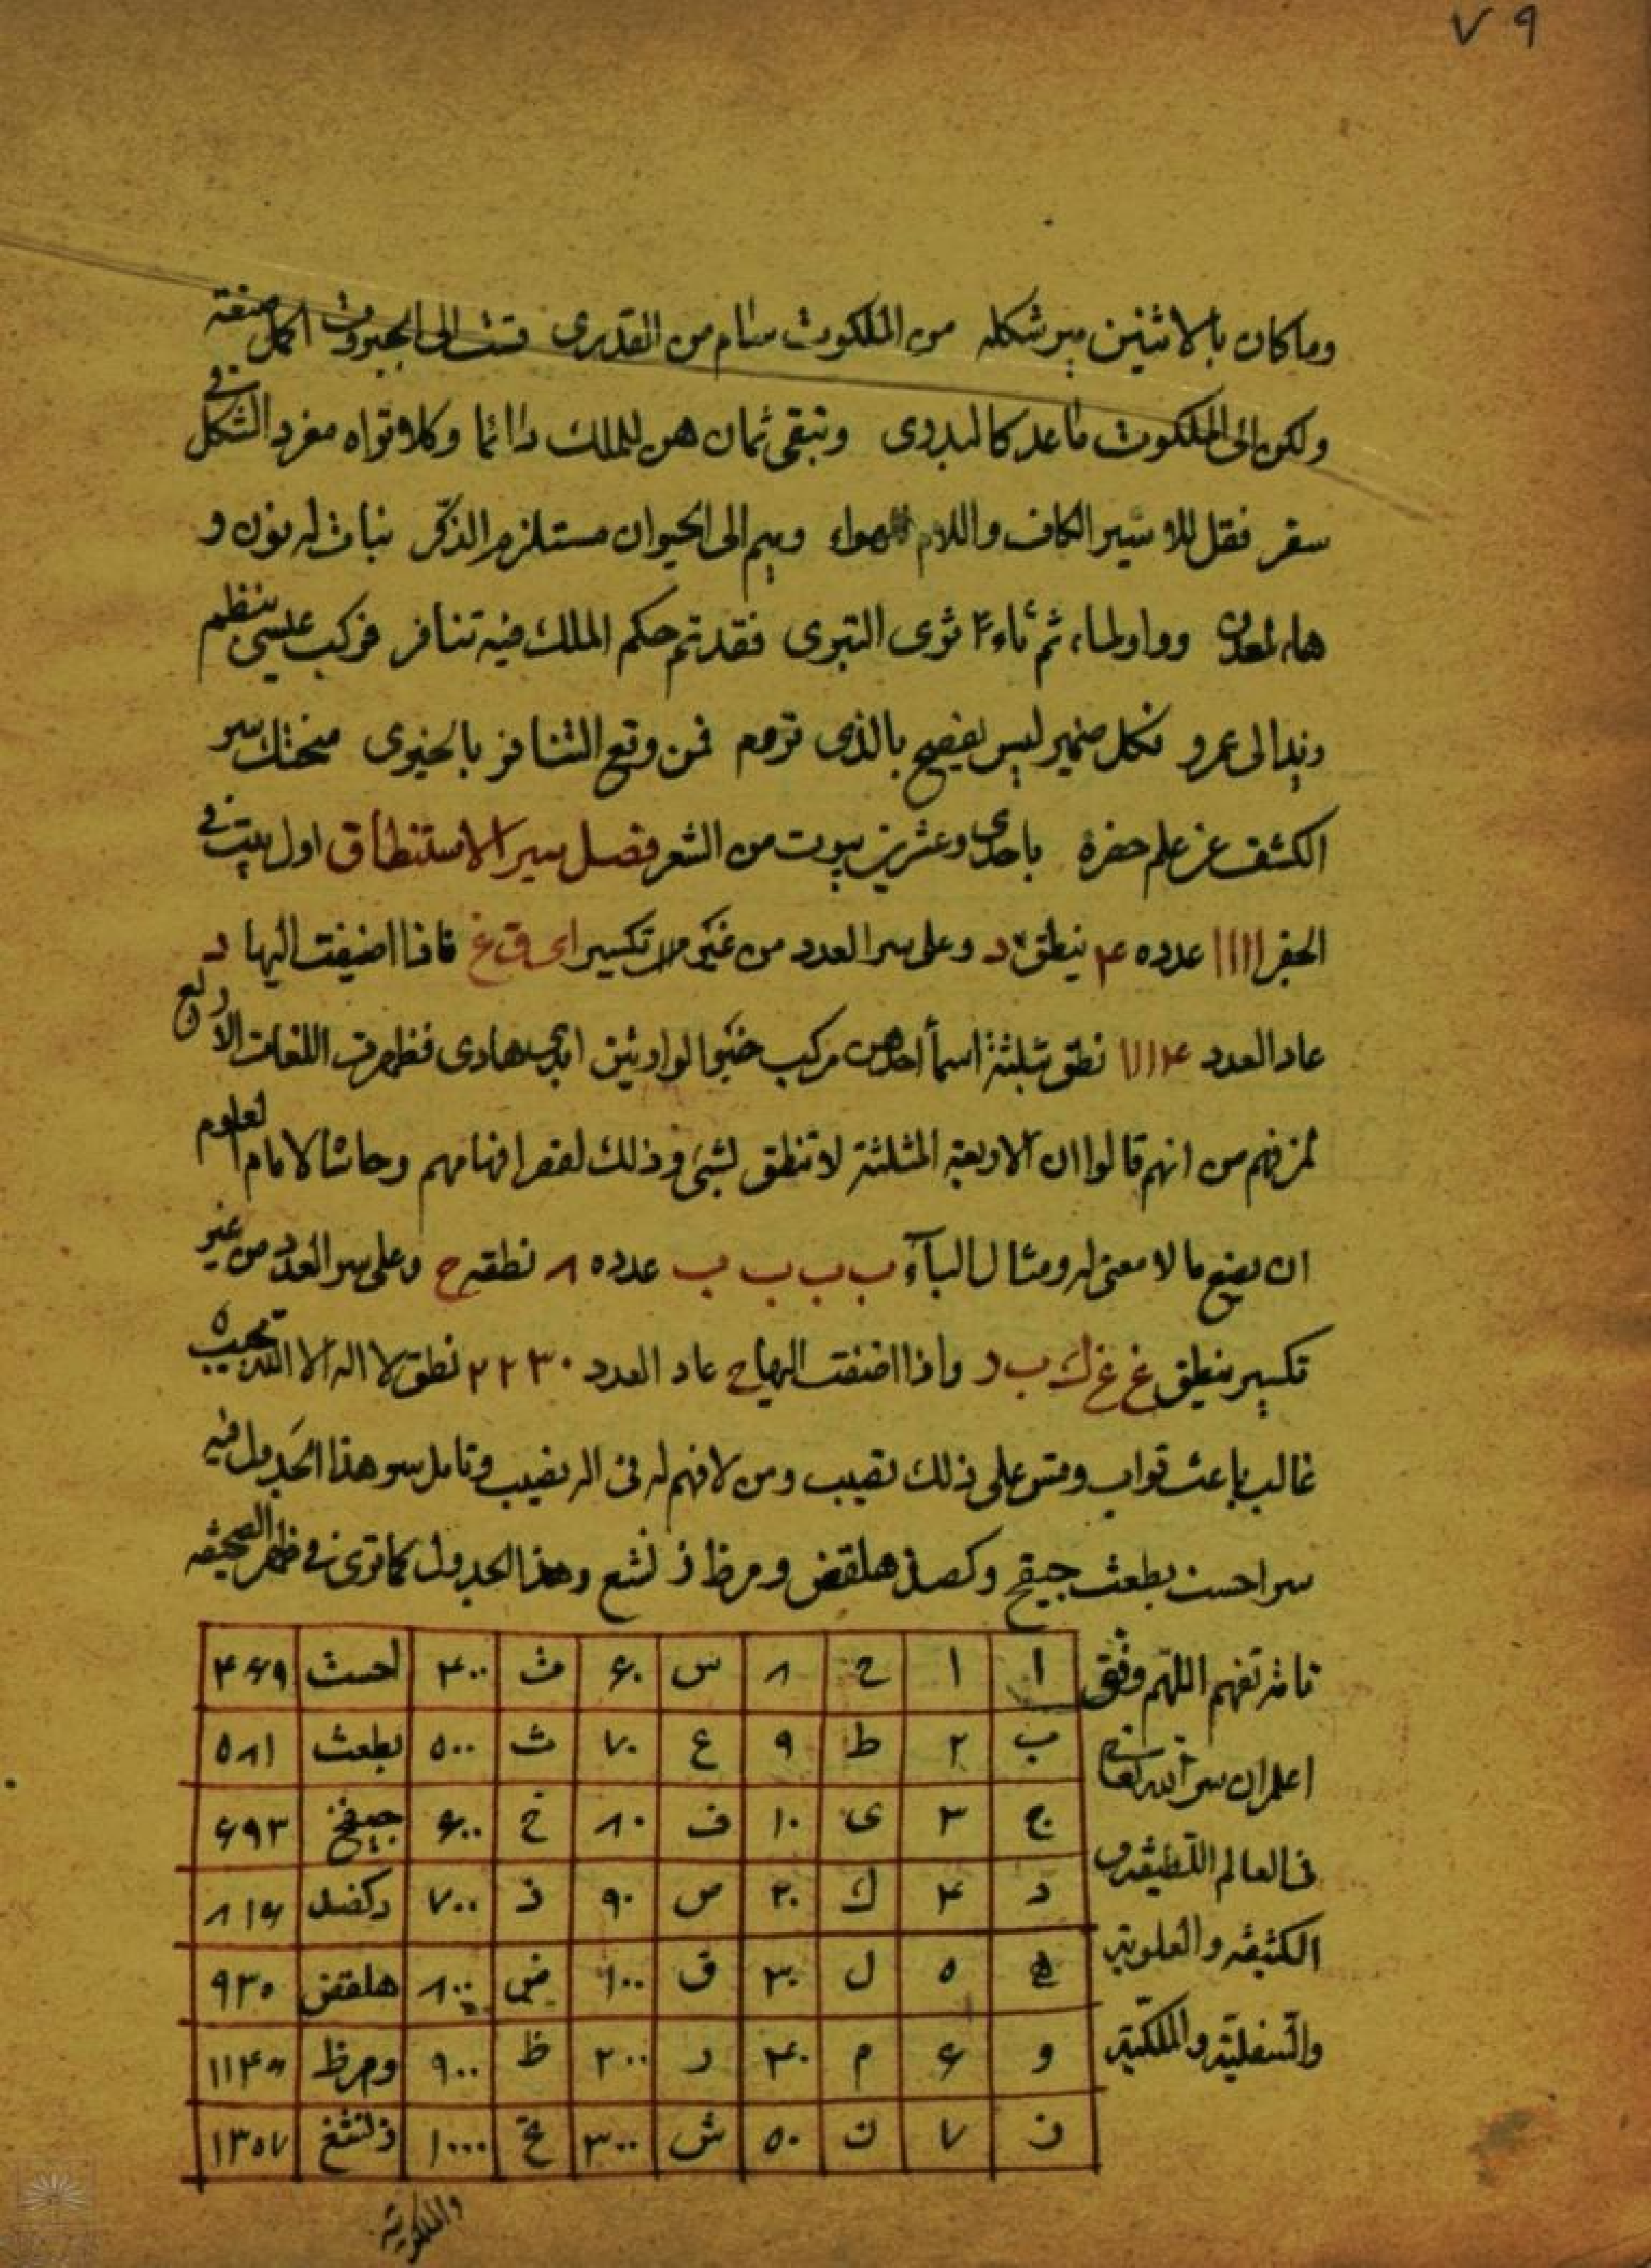 ٧٩
وما كان بالاثنين سير شكله من الملكوت سام من القدرى الى الجبروت اكمل صنفته
ولكن الى الملكوت ما عد كالبدرى وتبقى ثمان هن للملك دائما وكلا تراه مفرد الشكل فى
سفر فقل للاسير الكاف واللام للهواء وميم الى الحيوان مستلزم الذكر نبات له نون و
هاء لمعدن وواو لماء ثم ثاء ثوى التبرى فقد تم حكم الملك فيه تنافر فركب عيسى بنظم
وزيد الى عمرو فكل ضمير ليس يفصح بالذى تروم فمن وقع التنافر منحتك سر
الكشف عن علم حفرة باحدى وعشرين بيوت من الشعر فصل سير الاستنطاق اول بيت فى
الجفر اااا عدده ۴ ينطق د وعلى سر العدد من غير تكسير اى ق غ فاذا اضيفت اليها د
عاد العدد ١١١۴ نطق بثلثة اسمأ احدهن مركب خير الوارثين ابدى هادى فظهرت اللغات الاربع
لمن فهم من انهم قالوا ان الاربعة المثلثة لا تنطق لشئ وذلك لقصر افهامهم وحاشا لامام العلوم
ان يضع ما لا معنى له ومثال البآء ب ب ب ب عدده ٨ نطقه ح وعلى سر العدد من غير
تكسير ينطق غ غ ك ب ر واذا اضفت اليها ح عاد العدد ٢٢٣٠ نطق لا اله الا الله مجيب
غالب باعث تواب وقس على ذلك تصيب ومن لا فهم له فى اله نصيب وتامل سر هذا الجدول فيه
سر احست بطعث جيفخ وكصذ هلقض ومرظ زنشغ وهذا الجدول كما ترى فى ظهر الصحيفه
ا ا ح ٨ س ۶٠ ت ۴٠٠ احست ۴۶٩
ب ٢ ط ٩ ع ٧٠ ث ٥٠٠ بطعث ٥٨١
ج ٣ ى ١٠ ف ٨٠ خ ۶٠٠ جيفخ ۶٩٣
د ۴ ك ٢٠ ص ٩٠ ذ ٧٠٠ دكصذ ٨١۴
ه ٥ ل ٣٠ ق ١٠٠ ض ٨٠٠ هلقض ٩٣٥
و ۶ م ۴٠ ر ٢٠٠ ظ ٩٠٠ ومرظ ١١۴۶
ز ٧ ن ٥٠ ش ٣٠٠ غ ١٠٠٠ زنشغ ١٣٥٧
تفهم اللهم وفق
اعلم ان سر الله تعالى
فى العالم اللطيفه و
الكثيفه والعلوية
والسفلية والملكية
والملكوتية